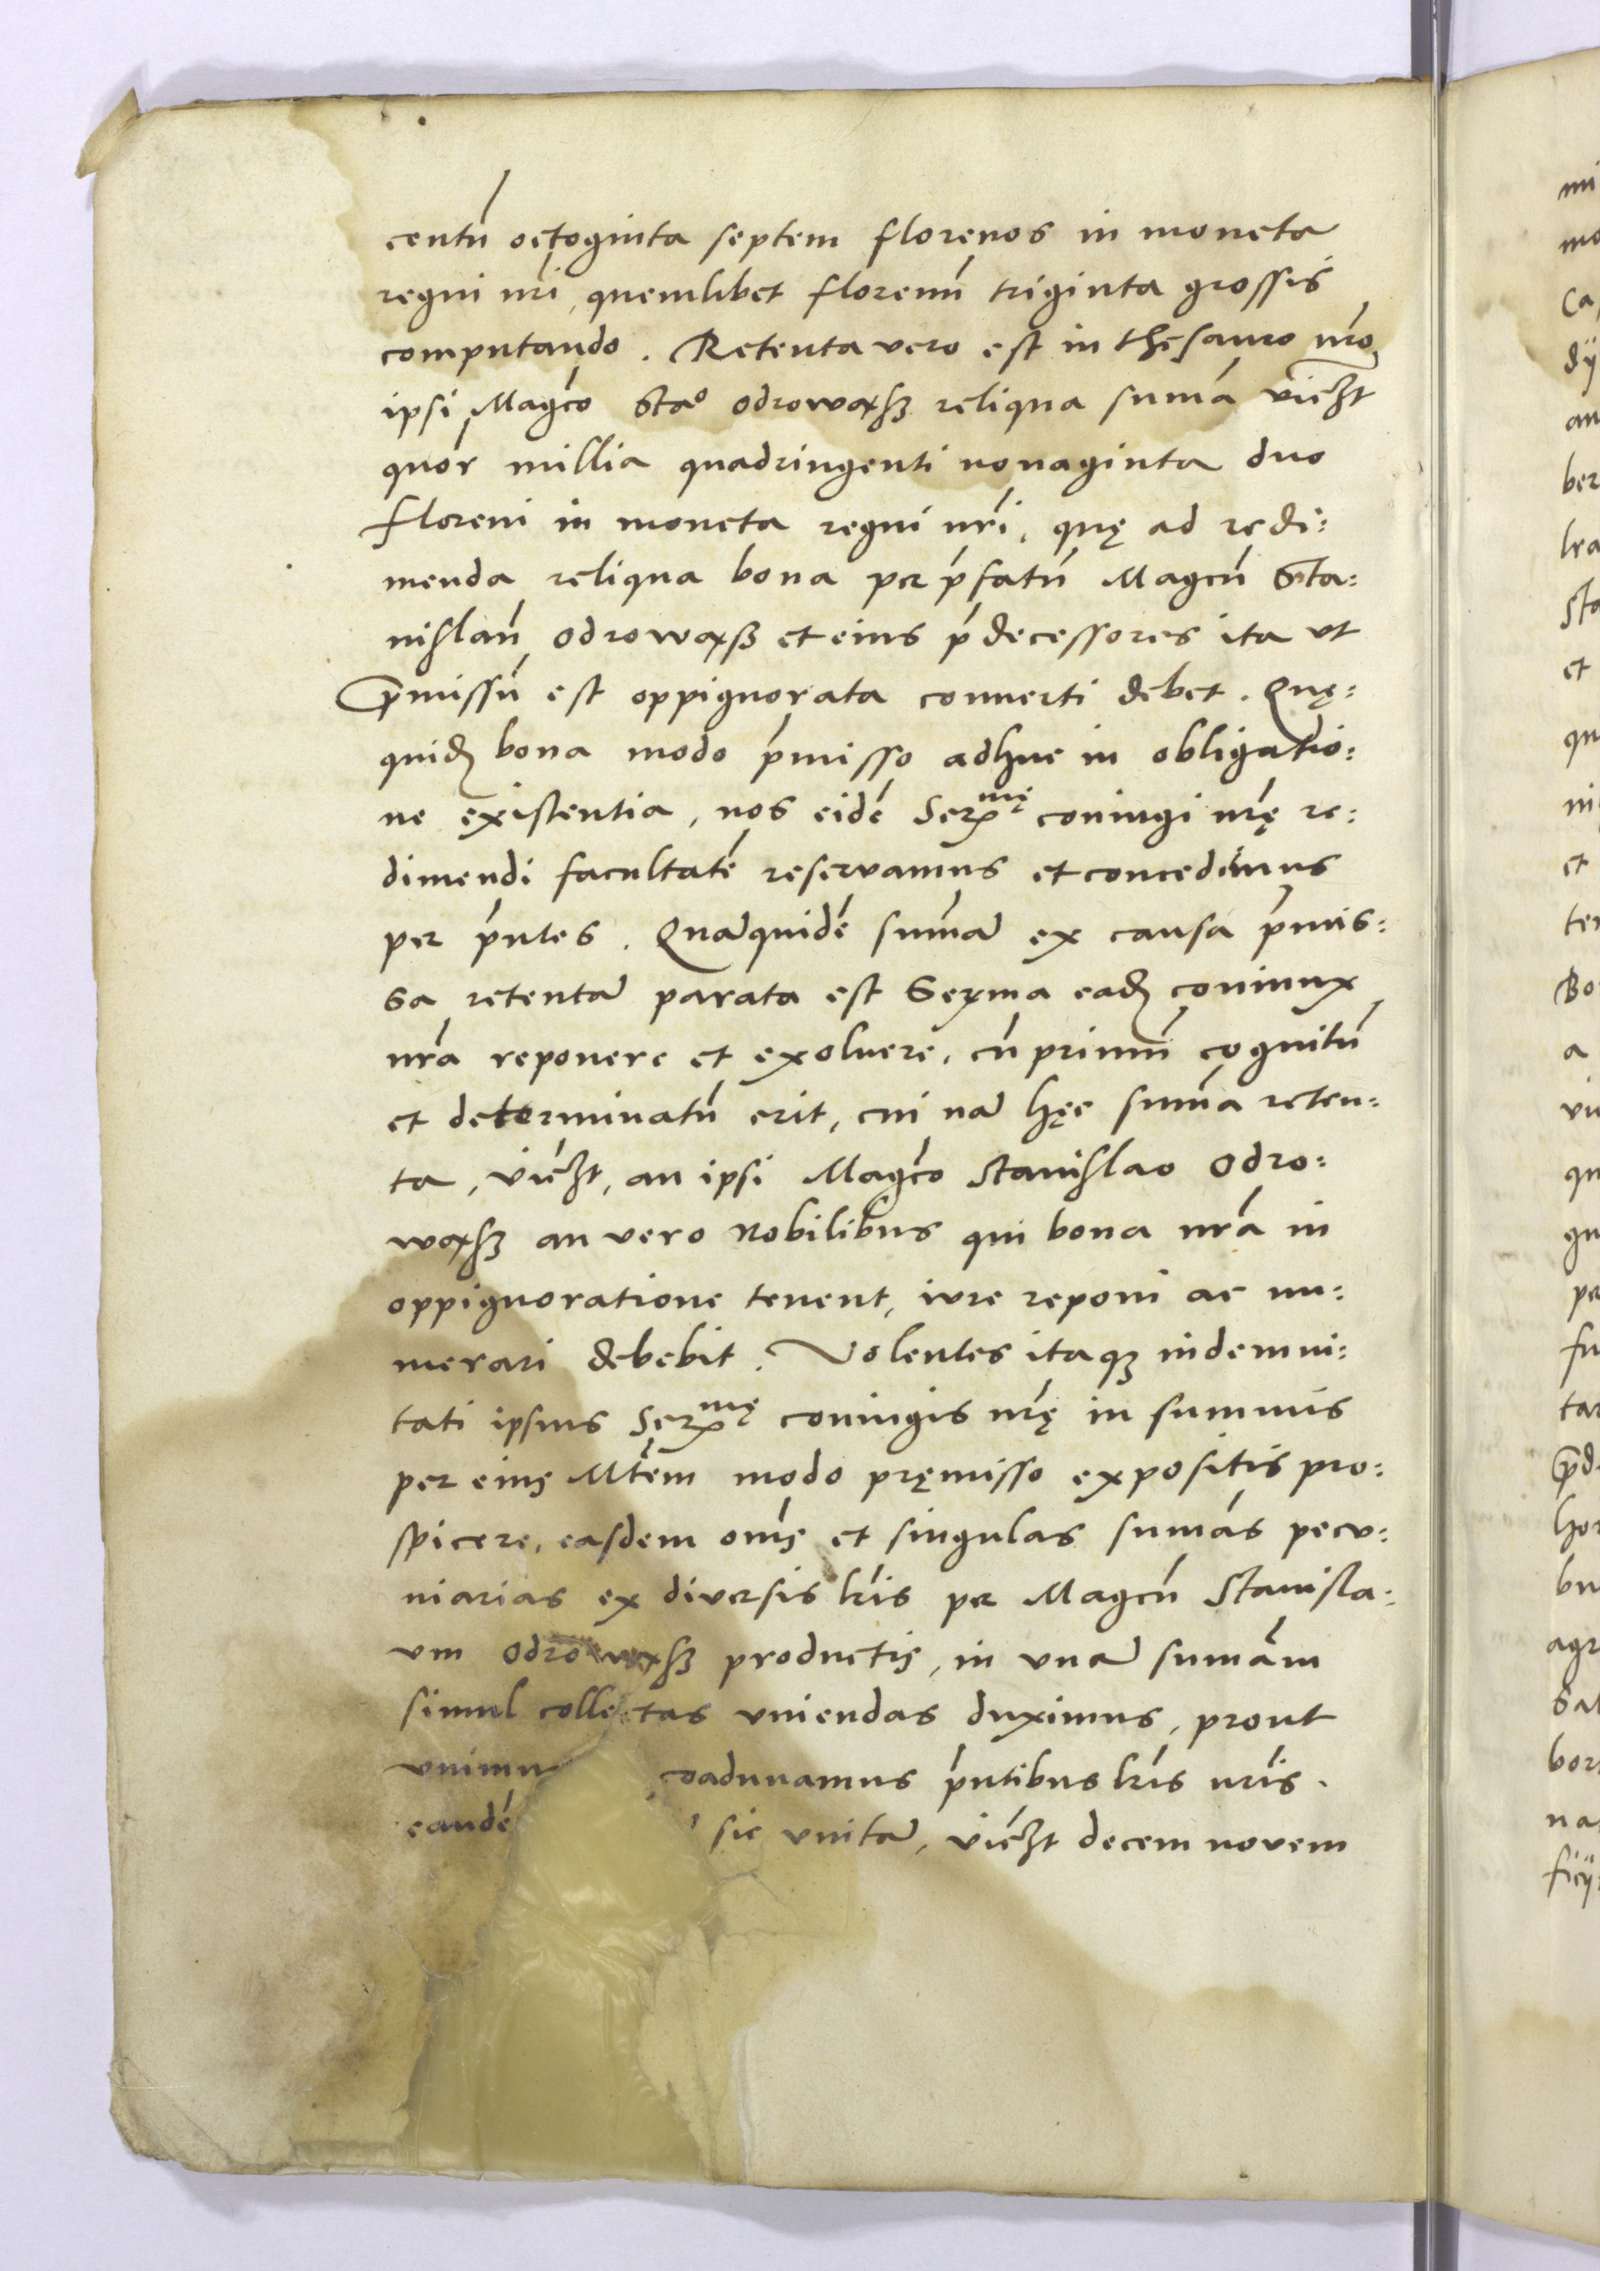 centū octoginta septem florenos in moneta
regni nr̄i, quemlibet florenū triginta grossis
computando. Retenta vero est in thesauro nr̄o
ipsi Magc̄o Stao odrowąsz reliqua sum̄a vic̄zt
quor millia quadringenti nonaginta duo
floreni in moneta regni nr̄i, quę ad redi:
menda reliqua bona per p̄fatū Magcū Sta:
nislaū odrowąsz et eius p̄decessores ita vt
p̄missū est oppignorata conuerti debet. Quę:
quidē bona modo p̄misso adhuc in obligatio:
ne existentia, nos eidē Sermę coniugi nr̄ę re:
dimendi facultatē reservamus et concedimus
per p̄ntes. Quāquidē sum̄ā ex causa p̄mis:
sa retentā parata est Serma eadē coniunx
nr̄a reponere et exoluere, cū primū cognitū
et determinatū erit, cui nā hęc sum̄a reten:
ta, vic̄zt, an ipsi Magc̄o Stanislao Odro:
wąsz an vero nobilibus qui bona nr̄a in
oppignoratione tenent, iure reponi ac nu:
merari debebit. Volentes itaqz indemni:
tati ipsius Sermę coniugis nr̄ę in summis
per eius Mtēm modo pręmisso expositis pro:
spicere, easdem om̄s et singulas sum̄as pecu:
niarias ex diversis lr̄is per Magcū Stanisla:
um Odrowąsz productis, in vnā sum̄am
simul collectas vniendas duximus, prout
vnimu coadunamus p̄ntibus lr̄is nr̄is.
eandē sic vnitā, vic̄zt decem novem
mi
mo
Ca
dij
an
ber
lra
Sta
et
qu
ni
et
ten
Bo
a
vn
qu
gn
pe
fu
tar
p̄d
hor
bu
agr
Sal
bor
na
ficij